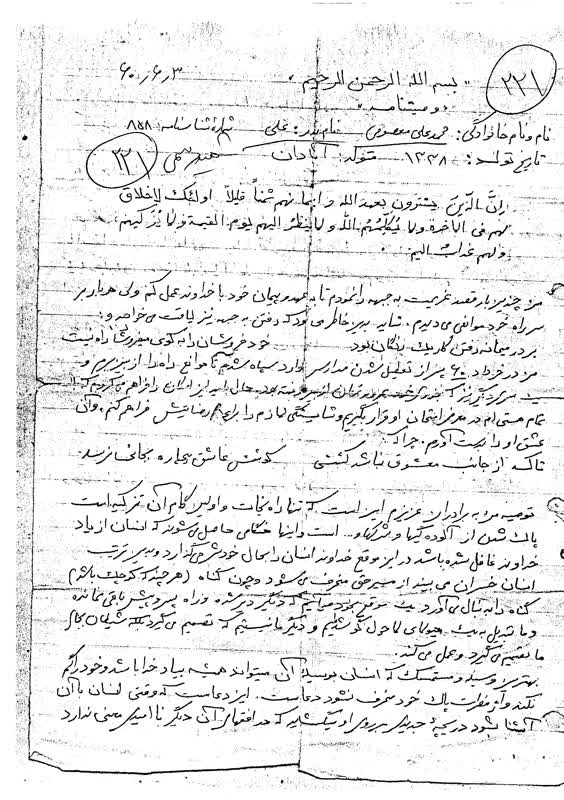 ۲۲۱
۶۰٫۶٫۳
بسم الله الرحمن الرحیم
وصیتنامه
نام و نام خانوادگی: محمد علی معصومی نام پدر: علی شماره شناسنامه: ۸۵۸
تاریخ تولد: ۱۳۳۸ متولد: آبادان ۲۲۱
ان الذین یشترون بعهد الله و ایمانهم ثمناً قلیلاً اولئک لاخلاق
لهم فی الآخرة ولا یکلمهم الله ولا ینظر الیهم یوم القیمة ولا یزکیهم
ولهم عذاب الیم.
من چندین بار قصد عزیمت به جبهه را نمودم تا به عهد و پیمان خود با خداوند عمل کنم ولی هر بار بر
سر راه خود موانعی می‌دیدم. شاید بدین خاطر می‌بود که رفتن به جبهه نیز لیاقت می‌خواهد و:
بر در میخانه رفتن کار یک رنگان بود خود فروشان را به کوی میفروشان راه نیست
من در خرداد ۶۰ پس از تعطیل شدن مدارس وارد سپاه شدم تا موانع راه را از بین ببرم و
تمام هستی‌ام در معرض امتحان او قرار بگیرم و شایستگی لازم را برای رضایتش فراهم کنم، و آن
عشق او را بدست آورم. چرا که:
تا که از جانب معشوق نباشد کششی کوشش عاشق بیچاره بجائی نرسد
توصیه من به برادران عزیزم این است که تنها راه نجات و اولین گام آن تزکیه است
پاک شدن از آلودگیها و شرکها و... است و اینها هنگامی حاصل می‌شوند که انسان از یاد
خداوند غافل نشده باشد در این موقع خداوند انسان را بحال خودش می‌گذارد و بدین ترتیب
انسان خسران می‌بیند از مسیر حق منحرف می‌شود و چون گناه (هر چند که کوچک باشد)
گناه را بدنبال می‌آورد یک موقع بخود میآئیم که دیگر دیر شده و راه پس و پیش باقی نمانده
و ما تبدیل به یک حیوان لاحول گوشتیم و دیگر ما نیستیم که تصمیم می‌گیرد بلکه شیطان بجای
ما تصمیم می‌گیرد و عمل می‌کند.
بهترین وسیله و مستمسک که انسان بوسیله آن میتواند همیشه بیاد خدا باشد و خود را گم
نکند و از فطرت پاک خود منحرف نشود دعاست. این دعاست که وقتی انسان با آن
آشنا شود دریچه جدیدی بروی او میگشاید که در افقهای آن دیگر ناامیدی معنی ندارد